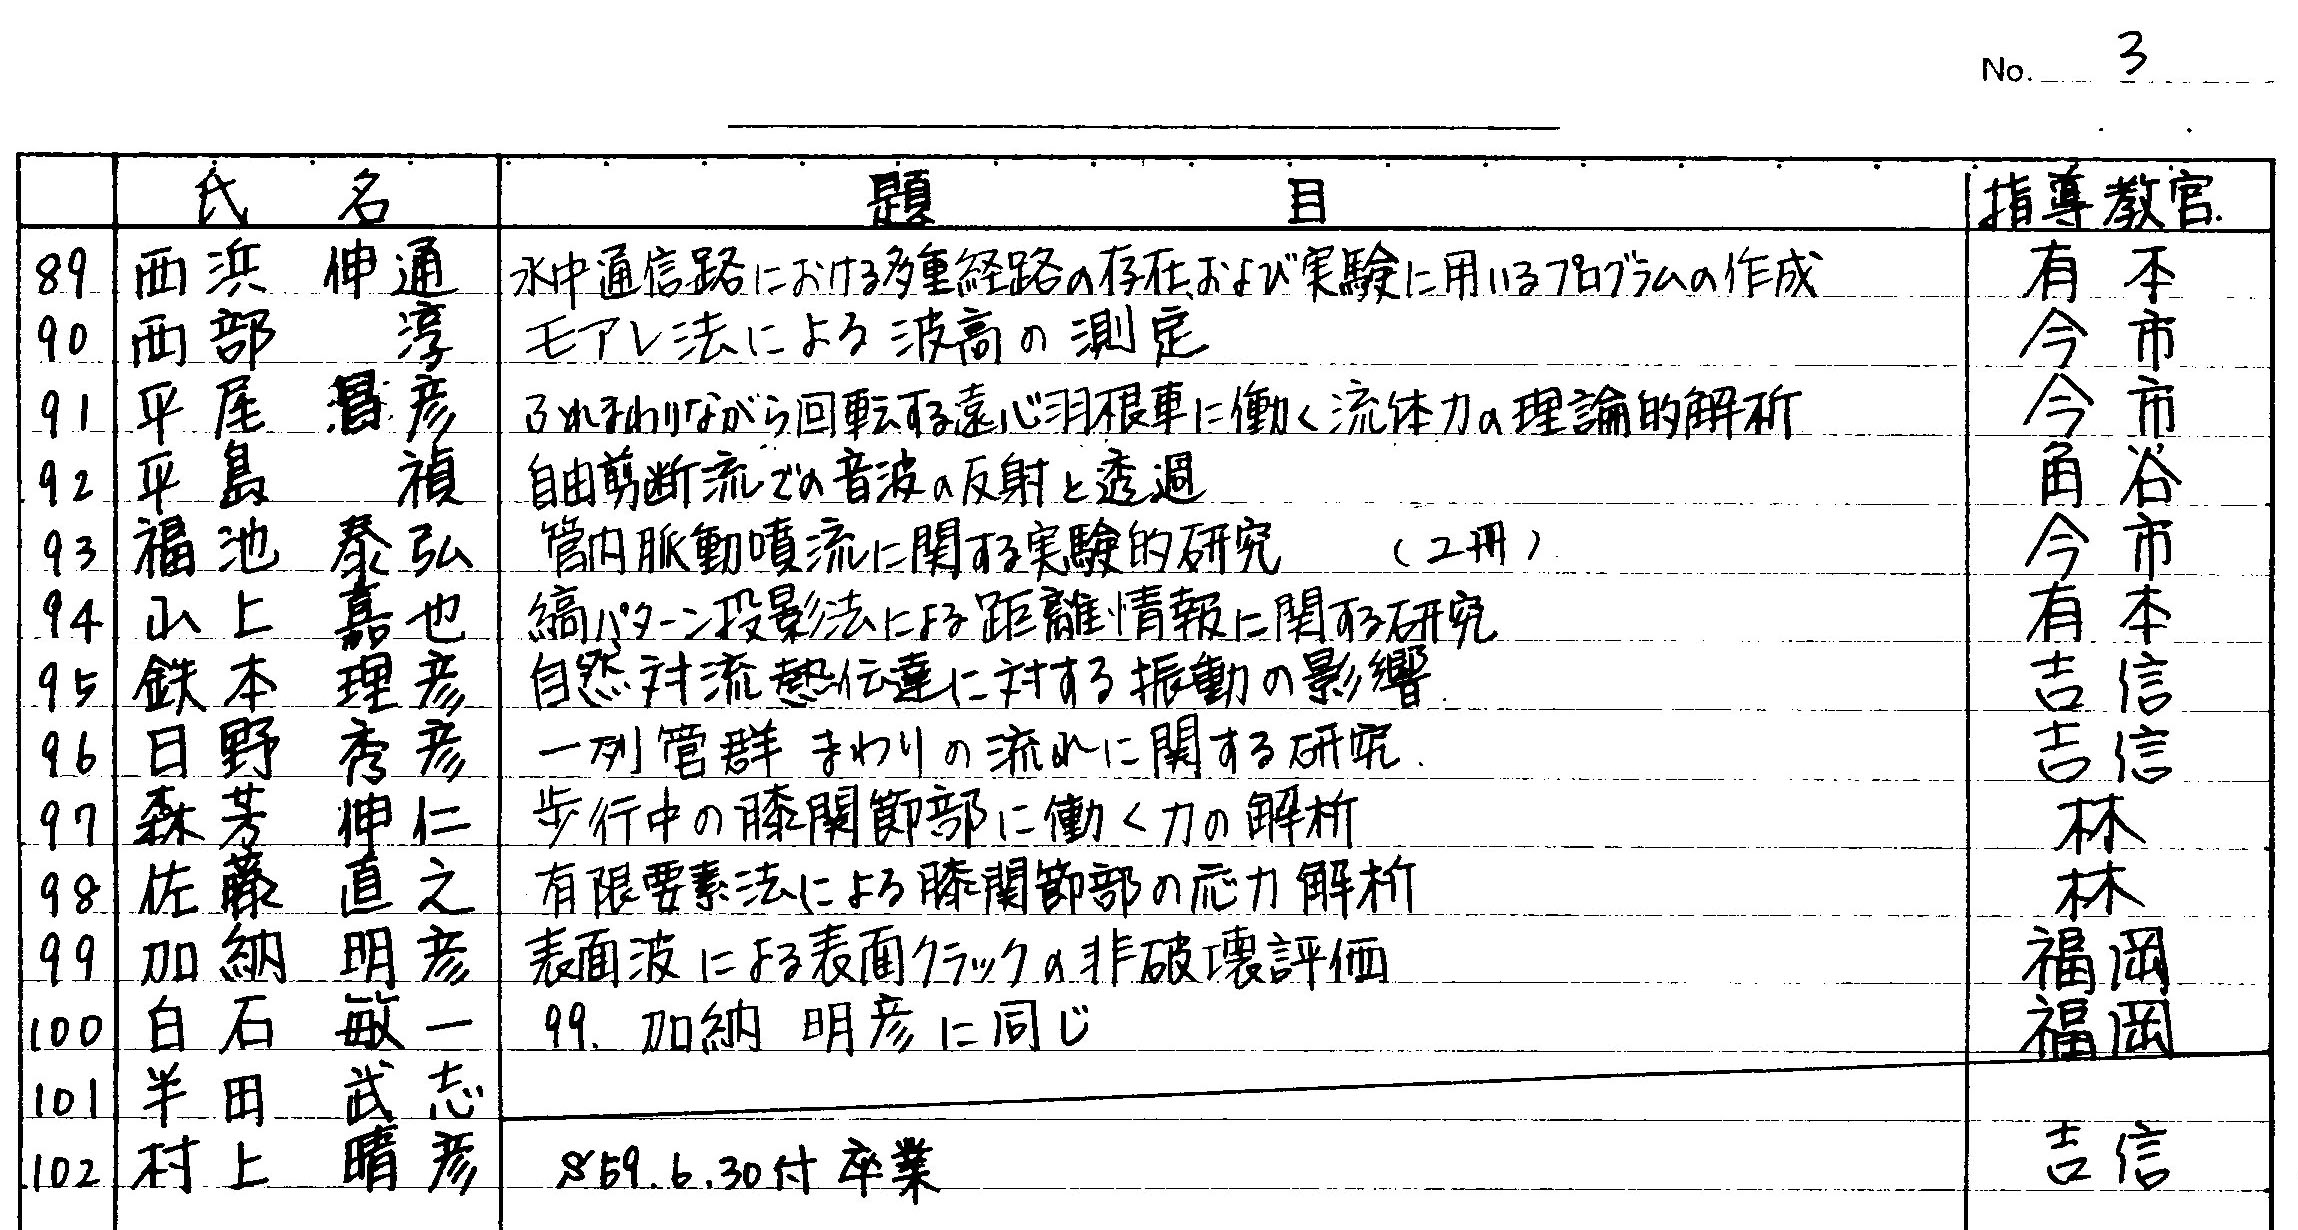 No. 3
氏名 題目 指導教官
89 西浜 伸通 水中通信路における多重経路の存在および実験に用いるプログラムの作成 有本
90 西部 淳 モアレ法による波高の測定 今市
91 平尾 昌彦 ふれまわりながら回転する遠心羽根車に働く流体力の理論的解析 今市
92 平島 禎 自由剪断流での音波の反射と透過 角谷
93 福池 泰弘 管内脈動噴流に関する実験的研究 (2冊) 今市
94 山上 嘉也 縞パターン投影法による距離情報に関する研究 有本
95 鉄本 理彦 自然対流熱伝達に対する振動の影響. 吉信
96 日野 秀彦 一列管群まわりの流れに関する研究. 吉信
97 森芳 伸仁 歩行中の膝関節部に働く力の解析 林
98 佐藤 直之 有限要素法による膝関節部の応力解析 林
99 加納 明彦 表面波による表面クラックの非破壊評価 福岡
100 白石 敏一 99. 加納 明彦に同じ 福岡
101 半田 武志
102 村上 晴彦 S59.6.30付 卒業 吉信